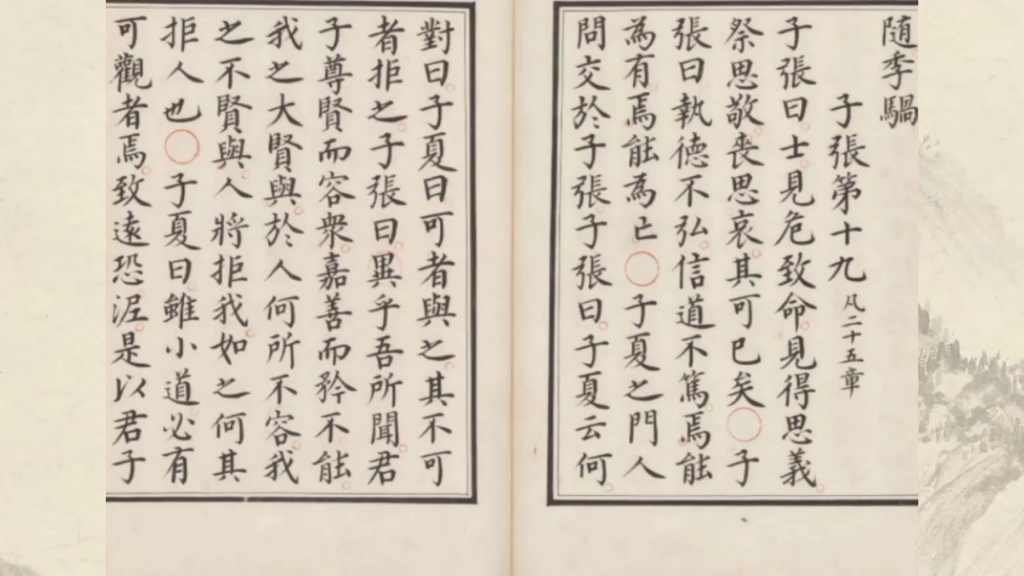 隨季騧
子張第十九 凡二十五章
子張曰士見危致命見得思義
祭思敬喪思哀其可已矣○子
張曰執德不弘信道不篤焉能
為有焉能為亡○子夏之門人
問交於子張子張曰子夏云何
對曰子夏曰可者與之其不可
者拒之子張曰異乎吾所聞君
子尊賢而容衆嘉善而矜不能
我之大賢與於人何所不容我
之不賢與人將拒我如之何其
拒人也○子夏曰雖小道必有
可觀者焉致遠恐泥是以君子